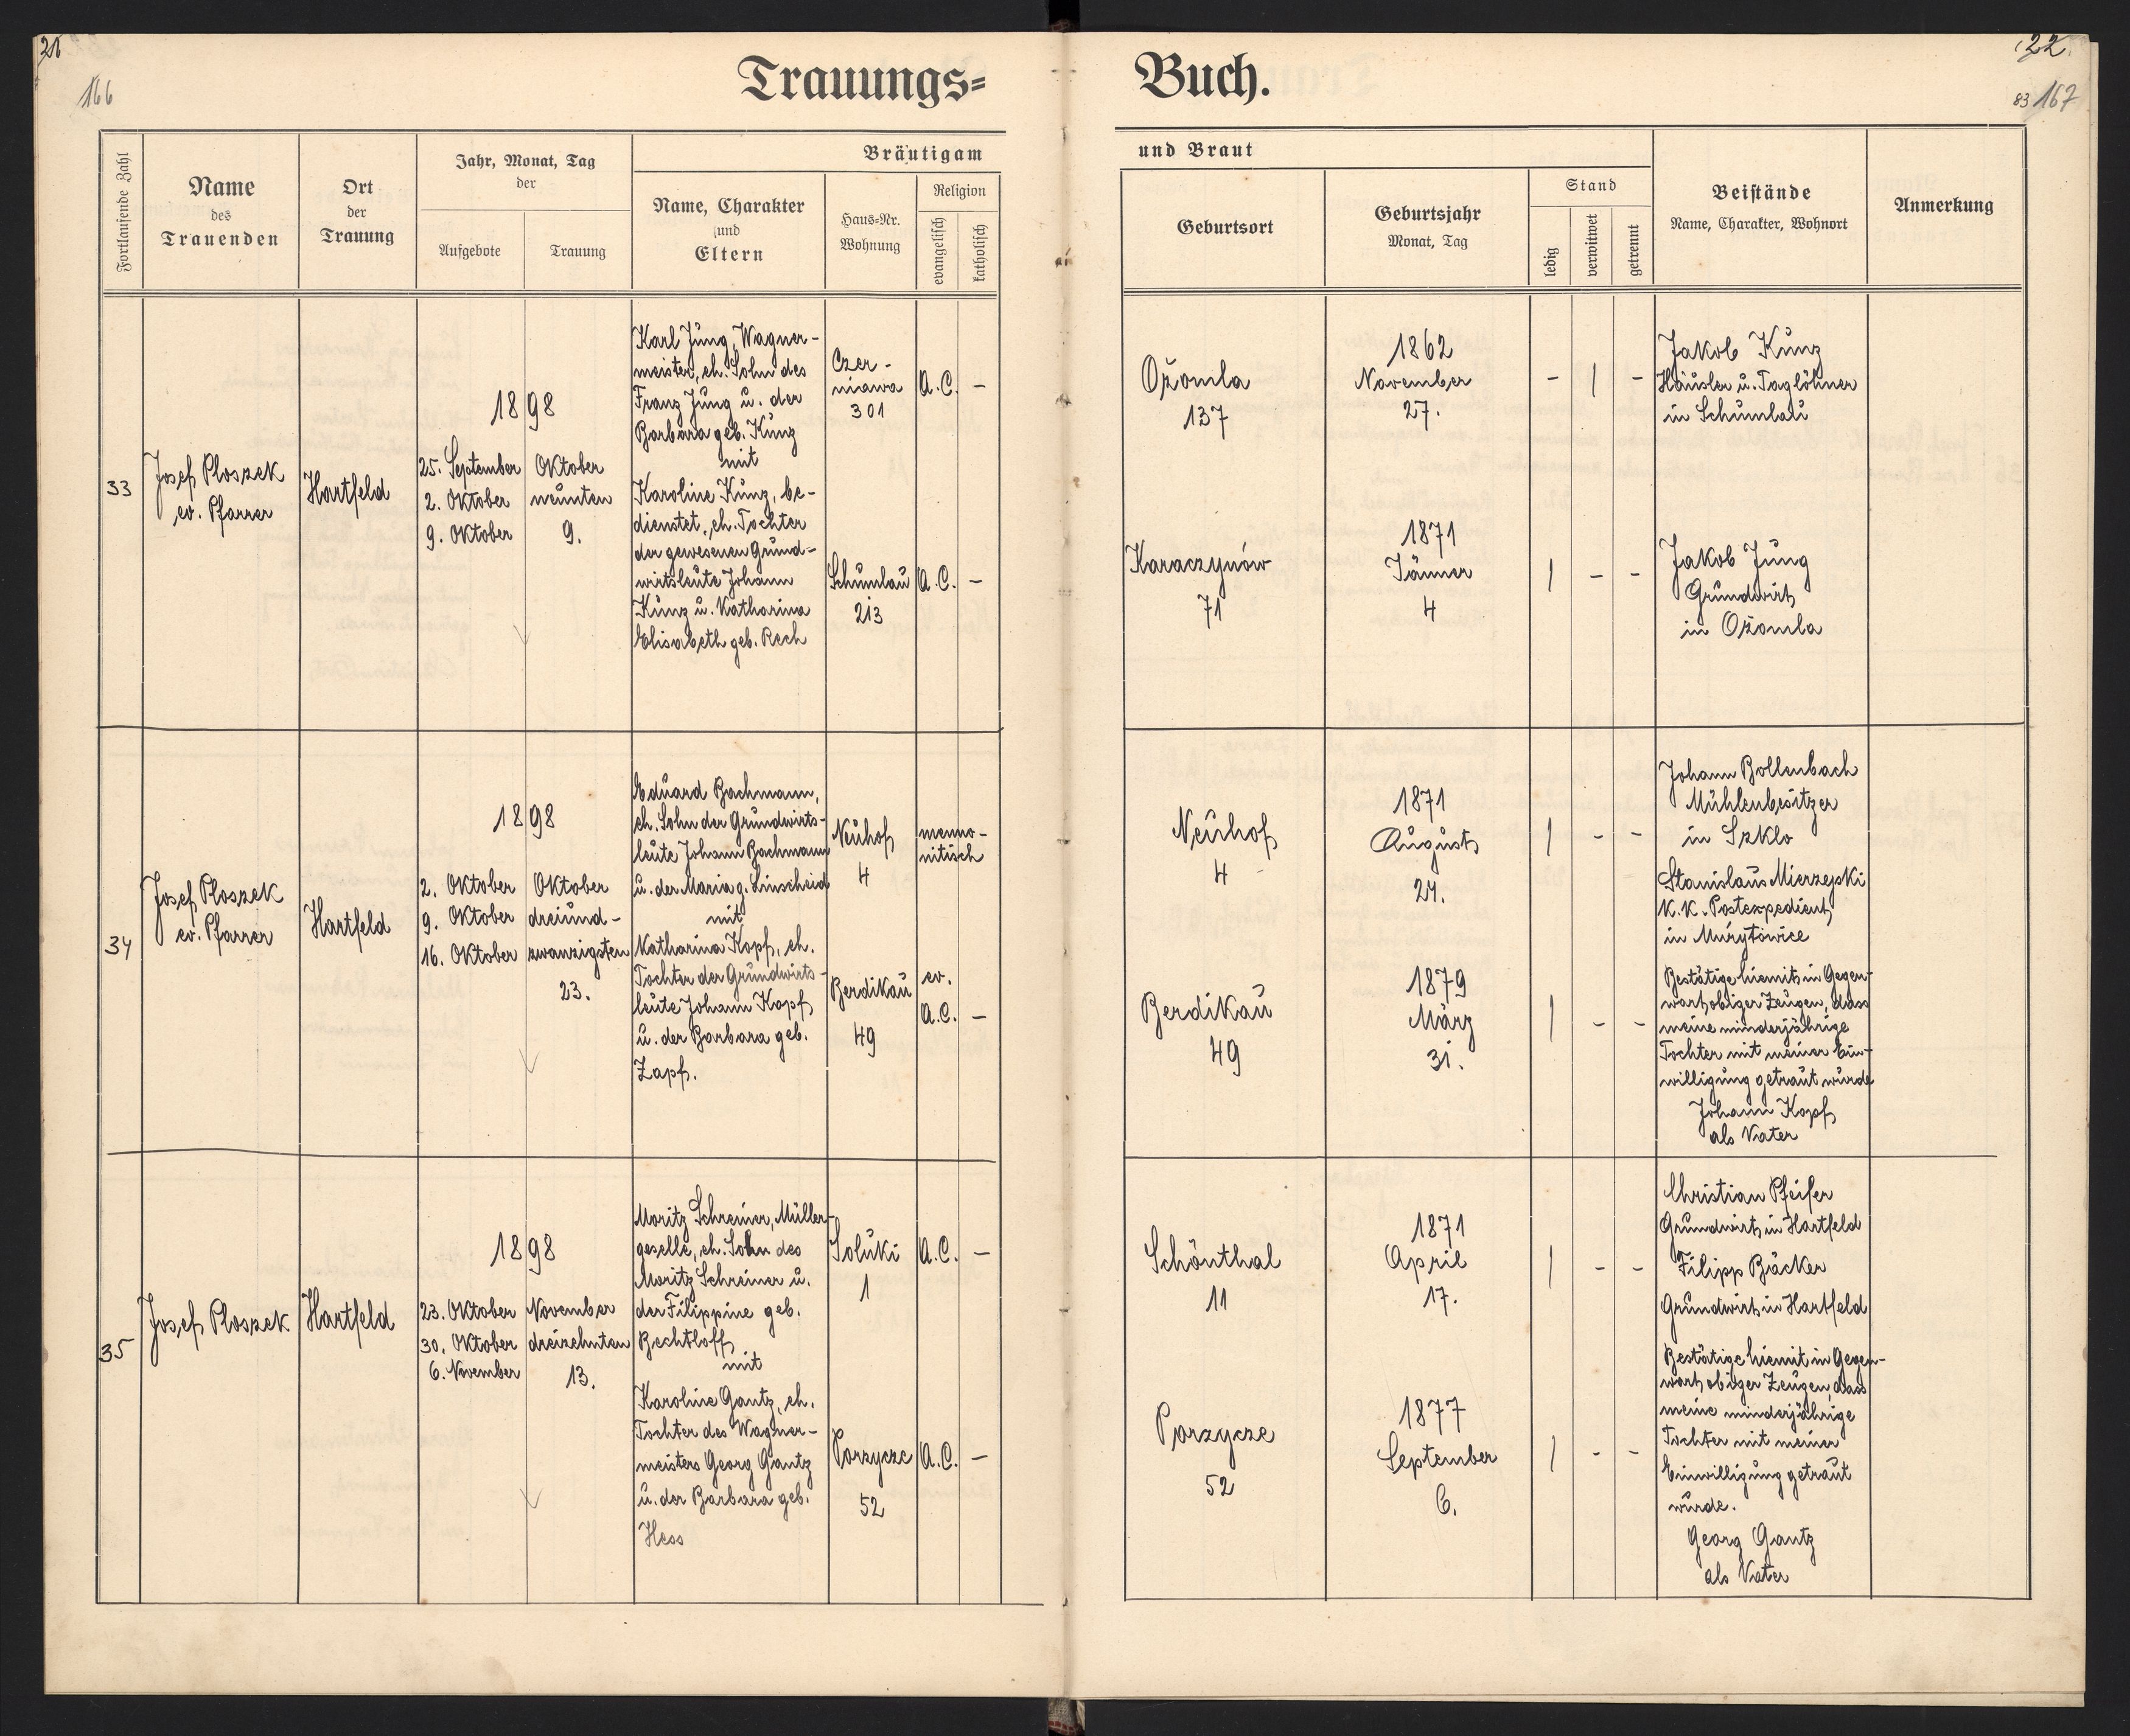 21
166
Trauungs=
Fortlaufende Zahl
Name
des
Trauenden
Ort
der
Trauung
Jahr, Monat, Tag
der
Aufgebote
Trauung
Bräutigam
Name, Charakter
und
Eltern
Haus=Nr.
Wohnung
Religion
evangelisch
katholisch
33
Josef Ploszek
ev. Pfarrer
Hartfeld
1898
25. September
2. Oktober
9. Oktober
Oktober
neunten
9.
Karl Jung, Wagner-
meister, eh. Sohn des
Franz Jung u. der
Barbara geb. Kunz
mit
Karoline Kunz, be-
dienstet, eh. Tochter
der gewesenen Grund-
wirtsleute Johann
Kunz u. Katharina
Elisabeth geb. Rech
Czer-
niawa
301
A.C.
-
Schumlau
213
A.C.
-
34
Josef Ploszek
ev. Pfarrer
Hartfeld
1898
2. Oktober
9. Oktober
16. Oktober
Oktober
dreiund-
zwanzigsten
23.
Eduard Bachmann,
eh. Sohn der Grundwirts-
leute Johann Bachmann
u. der Maria g. Linscheid
mit
Katharina Kopf, eh.
Tochter der Grundwirts-
leute Johann Kopf
u. der Barbara geb.
Zapf.
Neuhof
4
menno-
nitisch
Berdikau
49
ev.
A.C.
-
35
Josef Ploszek
Hartfeld
1898
23. Oktober
30. Oktober
6. November
November
dreizehnten
13.
Moritz Schreiner, Müller-
geselle, eh. Sohn des
Moritz Schreiner u.
der Filippine geb.
Bechtloff
mit
Karoline Gantz, eh.
Tochter des Wagner-
meisters Georg Gantz
u. der Barbara geb.
Hess
Soluki
1
A.C.
-
Porzycze
52
A.C.
-
22.
83 167
Buch.
und Braut
Geburtsort
Geburtsjahr
Monat, Tag
Stand
ledig
verwitwet
getrennt
Beistände
Name, Charakter, Wohnort
Anmerkung
Ożomla
137
1862
November
27.
- | -
Jakob Kunz
Häusler u. Taglöhner
in Schumlau
Karaczynów
71
1871
Jänner
4
| - -
Jakob Jung
Grundwirt
in Ożomla
Neuhof
4
1871
August
24.
| - -
Johann Bollenbach
Mühlenbesitzer
in Szklo
Stanislaus Mierzejski
k.k. Postexpedient
in
Berdikau
49
1879
März
31.
| - -
Bestätige hiemit in Gegen-
wart obiger Zeugen, dass
meine minderjährige
Tochter mit meiner Ein-
willigung getraut wurde
Johann Kopf
als Vater
Schönthal
11
1871
April
17.
| - -
Christian Pfeifer
Grundwirt in Hartfeld
Filipp Bäcker
Grundwirt in Hartfeld
Porzycze
52
1877
September
6.
| - -
Bestätige hiemit in Gegen-
wart obiger Zeugen, dass
meine minderjährige
Tochter mit meiner
Einwilligung getraut
wurde.
Georg Gantz
als Vater